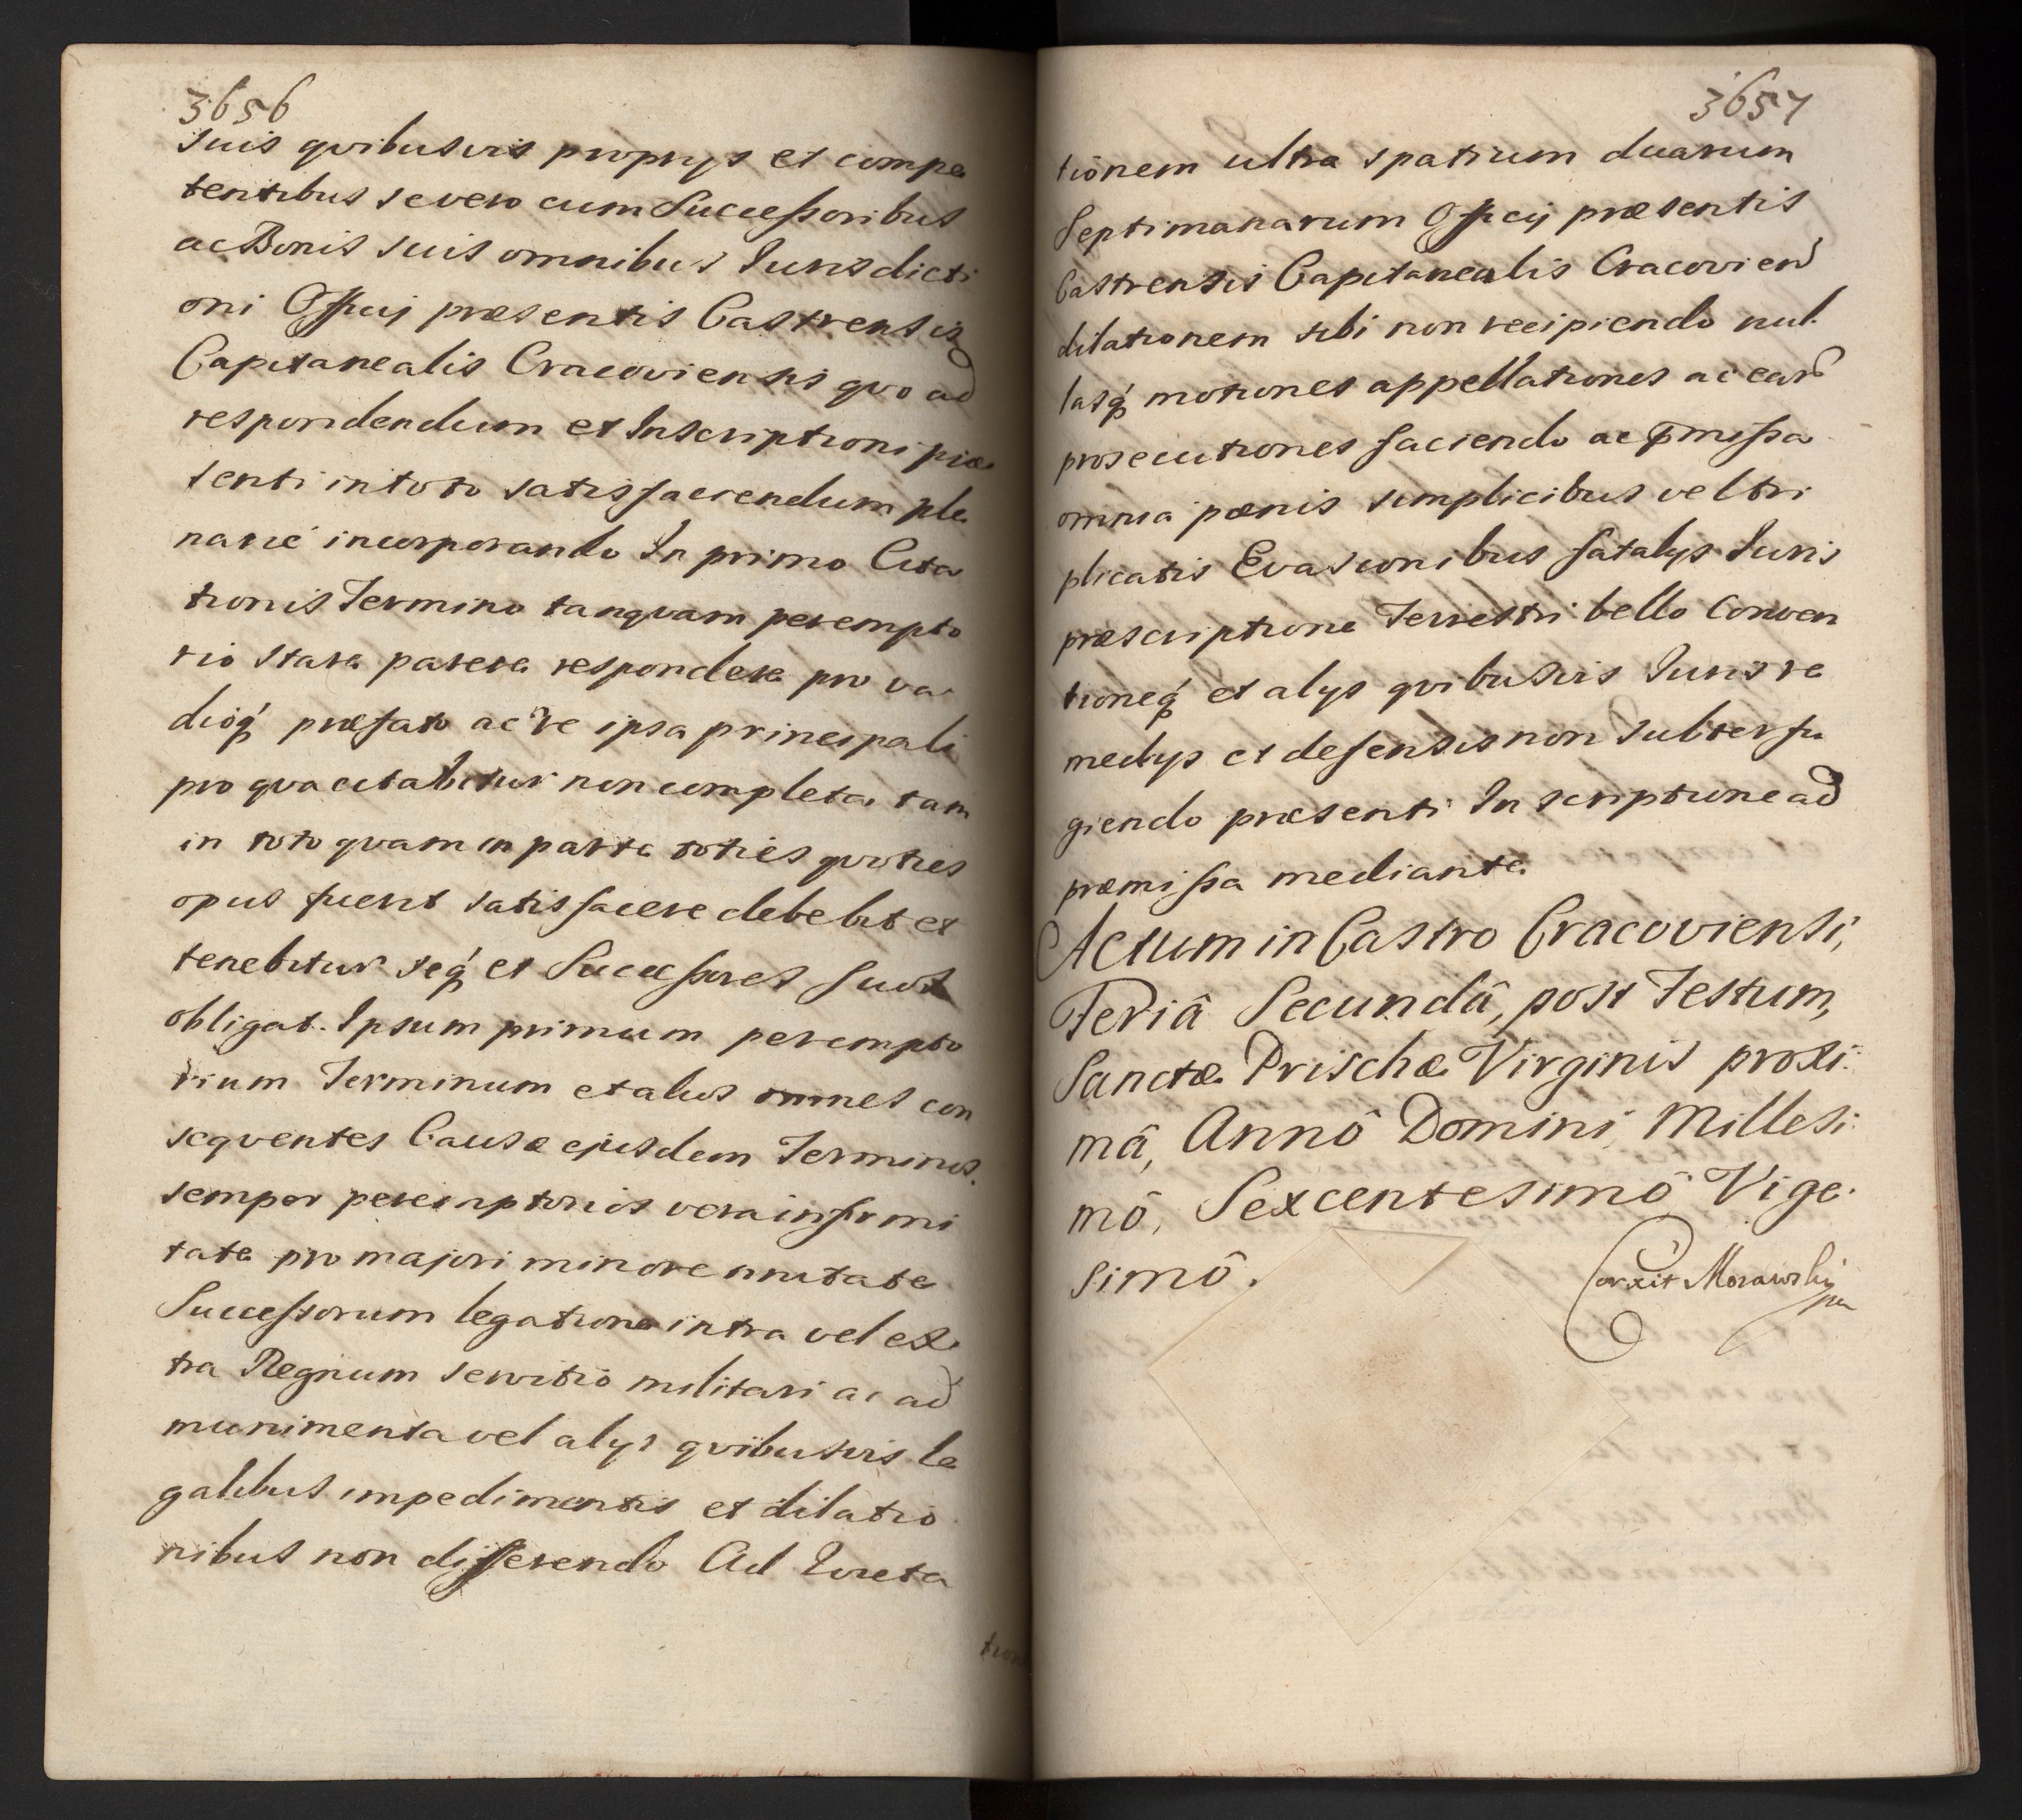 3656
suis qvibusvis proprys et compe
tentibus se vero cum Successoribus
ac Bonis suis omnibus Jurisdicti
oni Officij præsentis Castrensis
Capitanealis Cracoviensis qvo ad
respondendum et Inscriptioni præ
senti in toto satisfaciendum ple
narié incorporando In primo Cita
tionis Termino tanqvam perempto
rio stare parere respondere pro va
dioq́ præfato ac re ipsa principali
pro qva citabitur non completa tam
in toto qvam in parte toties qvoties
opus fuerit satisfacere debebit et
tenebitur seq́ et Successores suos
obligat. Ipsum primum perempto
rium Terminum et alios omnes con
seqventes Causæ ejusdem Terminos
semper peremptorios vera infirmi
tate pro majori minore nnitate
Successorum legatione intra vel ex
tra Regnum servitio militari ac ad
munimenta vel alys qvibusvis le
galibus impedimentis et dilatio
nibus non differendo Ad Lucta
tion
3657
tionem ultra spatium duarum
Septimanarum Officij præsentis
Castrensis Capitanealis Cracovien
dilationem sibi non recipiendo nul
lasq́ motiones appellationes ac ear
prosecutiones faciendo ac p̄missa
omnia pœnis simplicibus vel tri
plicatis Evasionibus fatalys Juris
præscriptione Terrestri bello Conven
tioneq́ et alys qvibusvis Juris re
medys et defensis non subterfu
giendo præsenti Inscriptione ad
præmissa mediante
Actum in Castro Cracoviensi,
Feriâ Secundâ, post Festum,
Sanctæ Prischæ Virginis proxi:
mâ, Annô Domini Millesi:
mô, Sexcentesimô Vige:
simô.
Corxit Morawski
mp